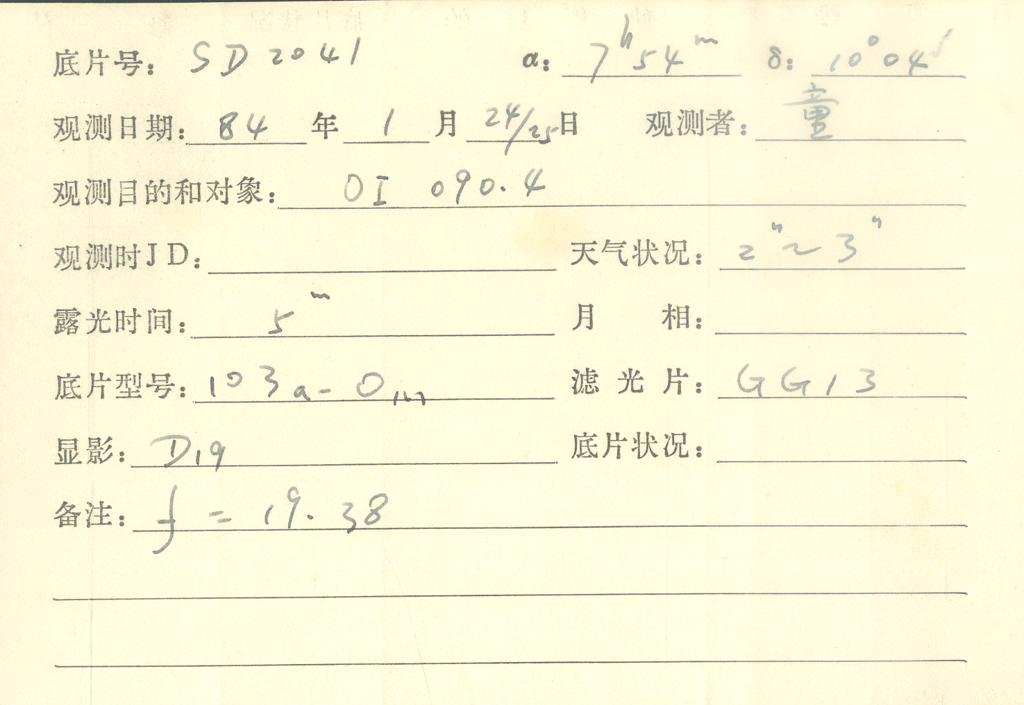 底片号: SD2041 α: 7h54m δ: 10°04′
观测日期: 84 年 1 月 24/25 日 观测者: 童
观测目的和对象: OI 090.4
观测时JD: 天气状况: 2"~3"
露光时间: 5m 月 相:
底片型号: 103a-O 滤光片: GG13
显影: D19 底片状况:
备注: f = 19.38